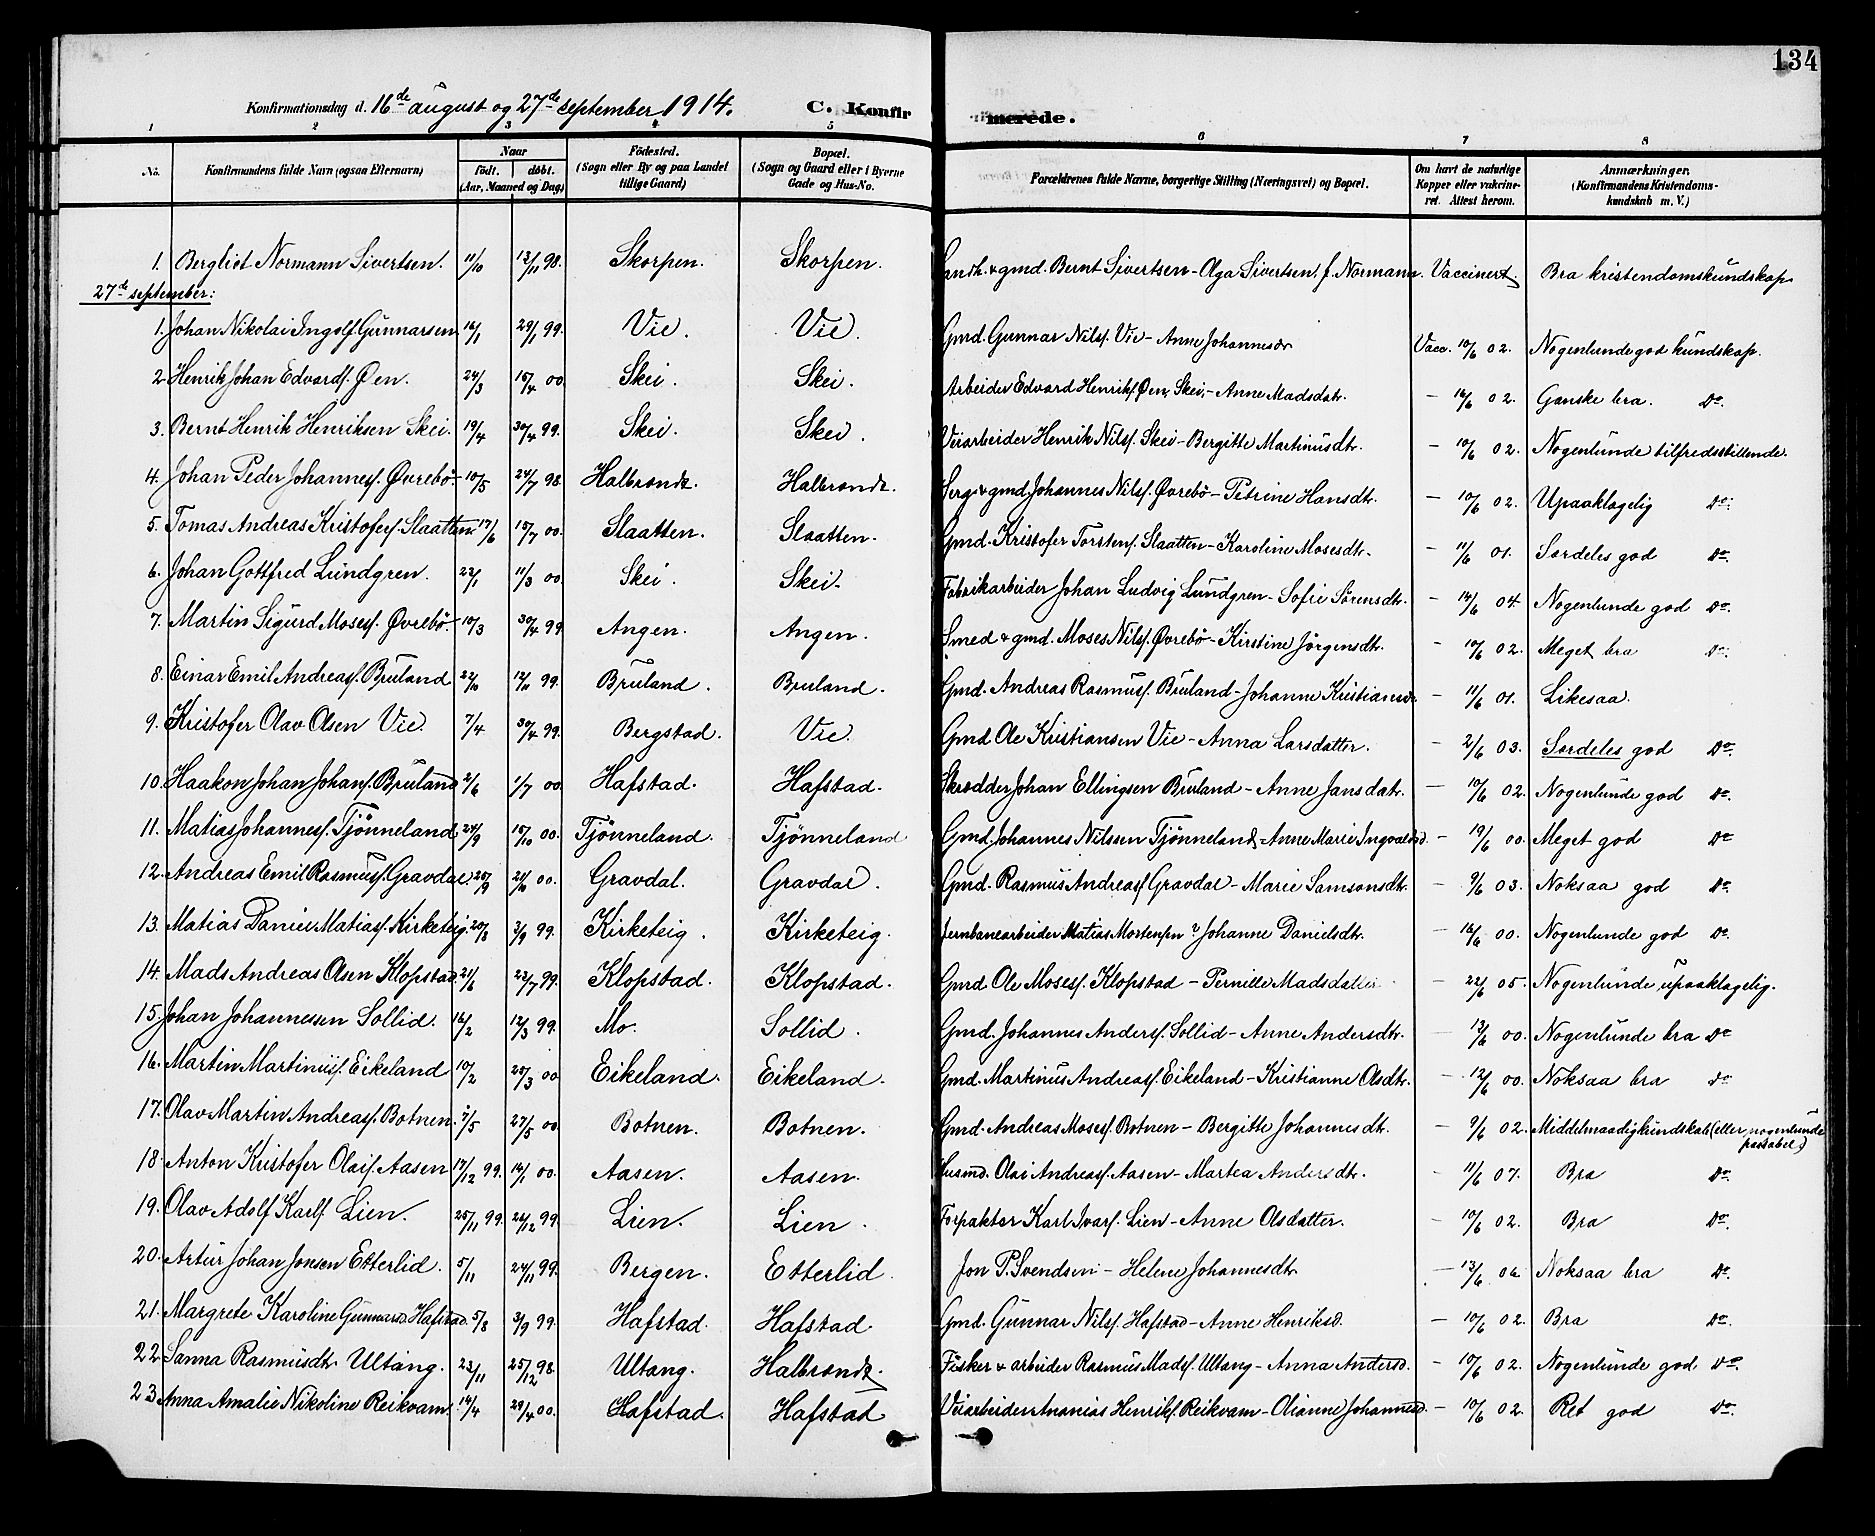 134
Konfirmationsdag d. 16de august og 27de september 1914. C. Konfirmerede.
1 2 3 4 5 6 7 8
No. Konfirmandens fulde Navn (ogsaa Efternavn) Naar født. døbt. (Aar, Maaned og Dag) Fødested. (Sogn eller By og paa Landet tillige Gaard) Bopæl. (Sogn og Gaard eller i Byerne Gade og Hus-No. Forældrenes fulde Navne, borgerlige Stilling (Næringsvei) og Bopæl. Om havt de naturlige Kopper eller vakcineret. Attest herom. Anmærkninger. (Konfirmandens Kristendomskundskab m. V.)
1. Bergliot Normann Sivertsen. 11/10 13/11 98. Skorpen. Skorpen. Landh. & gmd. Bernt Sivertsen - Olga Sivertsen f. Normann. Vaccinert. Bra kristendomskundskap
27de september:
1. Johan Nikolai Ingolf Gunnarsen 16/1 29/1 99. Vie. Vie. Gmd. Gunnar Nilsf. Vie - Anne Johannesdr Vacc. 10/6 02. Nogenlunde god kundskap.
2 Henrik Johan Edvardf. Øen. 24/3 15/4 00. Skei. Skei. Arbeider Edvard Henrikf. Øen, Skei, - Anne Madsdatr. - 16/6 02. Ganske bra. Do.
3. Bernt Henrik Henriksen Skei. 19/4 30/4 99. Skei. Skei. Veiarbeider Henrik Nilsf. Skei - Bergitte Martinusdtr. - 10/6 02. Nogenlunde tilfredsstillende.
4. Johan Peder Johannesf. Øvrebö. 10/5 24/7 98 Halbrændt. Halbrændt. Serg. & gmd. Johannes Nilsf. Øvrebö - Petrine Hansdtr. - 10/6 02. Upaaklagelig Do.
5. Tomas Andreas Kristoferf. Slaatten 17/6 15/7 00. Slaatten. Slaatten. Gmd. Kristofer Torstenf. Slaatten - Karoline Mosesdtr. - 11/6 01. Særdeles god Do.
6. Johan Gottfred Lundgren. 22/1 11/3 00. Skei. Skei. Fabrikarbeider Johan Ludvig Lundgren - Sofie Sørensdtr. - 14/6 04. Nogenlunde god Do.
7. Martin Sigurd Mosesf. Øvrebö. 10/3 30/4 99 Angen. Angen. Smed & gmd. Moses Nilsf. Øvrebö - Kirstine Jörgensdtr. - 10/6 02. Meget bra Do.
8. Einar Emil Andreasf. Bruland 22/10 12/11 99. Bruland. Bruland. Gmd. Andreas Rasmusf. Bruland - Johanne Kristiansdr. - 11/6 01. Likesaa.
9. Kristofer Olav Olsen Vie. 7/4 30/4 99. Bergstad. Vie. Gmd. Ole Kristiansen Vie - Anna Larsdatter. - 2/6 03. Særdeles god Do.
10. Haakon Johan Johanf. Bruland 2/6 1/7 00. Hafstad. Hafstad. Skrædder Johan Ellingsen Bruland - Anne Jansdatr. - 10/6 02. Nogenlunde god Do.
11. Matias Johannesf. Tjönneland 24/9 15/10 00. Tjönneland. Tjönneland Gmd. Johannes Nilssen Tjönneland, - Anne Marie Ingvaldsd. - 19/6 00. Meget god Do
12. Andreas Emil Rasmusf. Gravdal. 25/9 21/10 00. Gravdal. Gravdal. Gmd. Rasmus Andreasf. Gravdal - Marie Samsonsdtr. - 9/6 03. Noksaa god Do.
13. Matias Daniel Matiasf. Kirketeig. 20/8 3/9 99. Kirketeig. Kirketeig. Jernbanearbeider Matias Mortensen & Johanne Danielsdtr. - 16/6 00. Nogenlunde god Do.
14. Mads Andreas Olsen Klopstad. 21/6 23/7 99. Klopstad. Klopstad. Gmd. Ole Mosesf. Klopstad - Pernille Madsdatter - 22/6 05. Nogenlunde upaaklagelig.
15. Johan Johannessen Sollid. 16/2 12/3 99. Mo. Sollid. Gmd. Johannes Andersf. Sollid - Anne Andersdtr. - 13/6 00. Nogenlunde bra Do
16. Martin Martinusf. Eikeland 10/2 25/3 00 Eikeland. Eikeland. Gmd. Martinus Andreasf. Eikeland - Kristianne Olsdtr. - 12/6 00. Noksaa bra Do
17. Olav Martin Andreasf. Botnen. 2/5 27/5 00. Botnen. Botnen. Gmd. Andreas Mosesf. Botnen - Bergitte Johannesdtr. - 9/6 02. Middelmaadig kundskab (eller nogenlunde passabel)
18. Anton Kristofer Olaif. Aasen 17/12 99. 14/1 00. Aasen. Aasen. Husmd. Olai Andreasf. Aasen - Martea Andersdtr. - 11/6 07. Bra Do.
19. Olav Adolf Karlf. Lien. 25/11 99. 26/12 99. Lien. Lien. Forpakter Karl Ivarf. Lien - Anne Olsdatter. - 10/6 02. Bra Do.
20. Artur Johan Jonsen Etterlid. 5/11 24/11 99. Bergen. Etterlid. Jon P. Svendsen - Helene Johannesdtr. - 13/6 06. Noksaa bra Do.
21. Margrete Karoline Gunnarsd. Hafstad. 5/8 3/9 99. Hafstad. Hafstad. Gmd. Gunnar Nilsf. Hafstad - Anne Henriksd. - 10/6 02. Bra Do.
22. Sanna Rasmusdtr. Ullang. 23/11 25/12 98. Ultang. Halbrændt. Fisker & arbeider Rasmus Madsf. Ultang - Anna Andersd. - 10/6 02. Nogenlunde god Do.
23. Anna Amalie Nikoline Reikvam. 14/4 29/4 00. Hafstad. Hafstad Veiarbeider Ananias Henrikf. Reikvam - Olianne Johannesd. - 10/6 02. Ret god Do.